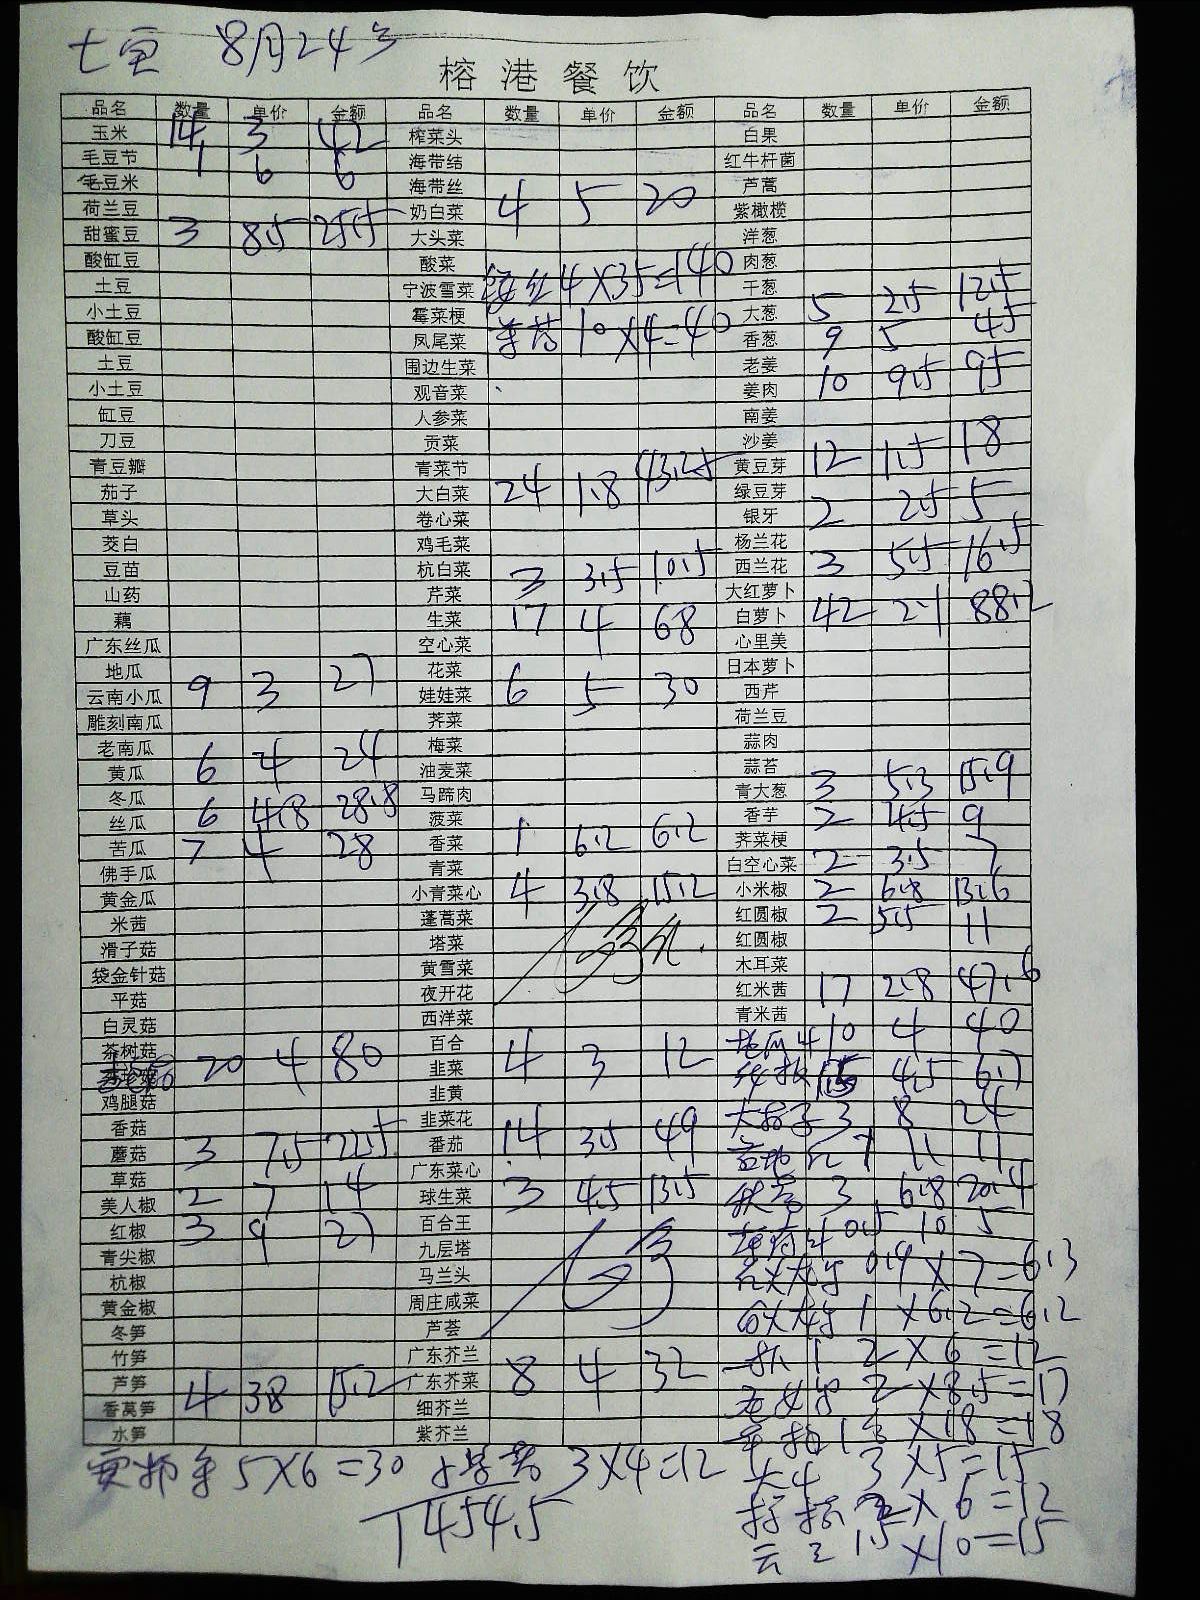 8月24号
榕港餐饮
品名 数量 单价 金额 品名 数量 单价 金额 品名 数量 单价 金额
玉米 14 3 42 榨菜头 白果
毛豆节 1 6 6 海带结 红牛杆菌
毛豆米 海带丝 芦蒿
荷兰豆 奶白菜 4 5 20 紫橄榄
甜蜜豆 3 8.5 25.5 大头菜 洋葱
酸缸豆 酸菜 肉葱
土豆 宁波雪菜 丝 4×35=140 干葱
小土豆 霉菜梗 大葱 5 2.5 12.5
酸缸豆 凤尾菜 10×4=40 香葱 9 5 45
土豆 围边生菜 老姜
小土豆 观音菜 姜肉 10 9.5 95
缸豆 人参菜 南姜
刀豆 贡菜 沙姜
青豆瓣 青菜节 黄豆芽 12 1.5 18
茄子 大白菜 24 1.8 43.2 绿豆芽
草头 卷心菜 银牙 2 2.5 5
茭白 鸡毛菜 杨兰花
豆苗 杭白菜 西兰花 3 5.5 16.5
山药 芹菜 3 3.5 10.5 大红萝卜
藕 生菜 17 4 68 白萝卜 42 2.1 88.2
广东丝瓜 空心菜 心里美
地瓜 花菜 日本萝卜
云南小瓜 9 3 27 娃娃菜 6 5 30 西芹
雕刻南瓜 荠菜 荷兰豆
老南瓜 梅菜 蒜肉
黄瓜 6 4 24 油麦菜 蒜苔
冬瓜 马蹄肉 青大葱 3 5.3 15.9
丝瓜 6 4.8 28.8 菠菜 香芋 2 4.5 9
苦瓜 7 4 28 香菜 1 6.2 6.2 荠菜梗
佛手瓜 青菜 白空心菜 2 3.5 7
黄金瓜 小青菜心 4 3.8 15.2 小米椒 2 6.8 13.6
米茜 蓬蒿菜 红圆椒 2 5.5 11
滑子菇 塔菜 红圆椒
袋金针菇 黄雪菜 木耳菜
平菇 夜开花 红米茜 17 2.8 47.6
白灵菇 西洋菜 青米茜
茶树菇 百合 10 4 40
20 4 80 韭菜 4 3 12 4.5 6.7
鸡腿菇 韭黄
香菇 韭菜花 3 8 24
蘑菇 3 7.5 22.5 番茄 14 3.5 49 1 11 11
草菇 广东菜心
美人椒 2 7 14 球生菜 3 4.5 13.5 3 6.8 20.4
红椒 3 9 27 百合王 0.5 10 5
青尖椒 九层塔
杭椒 马兰头 0.9×7=6.3
黄金椒 周庄咸菜 1×6.2=6.2
冬笋 芦荟
竹笋 广东芥兰 2×6=12
芦笋 广东芥菜 8 4 32 2×8.5=17
香莴笋 4 3.8 15.2 细芥兰
水笋 紫芥兰 ×18=18
5×6=30 3×4=12 3×5=15
1454.5 2×6=12
1.5×10=15